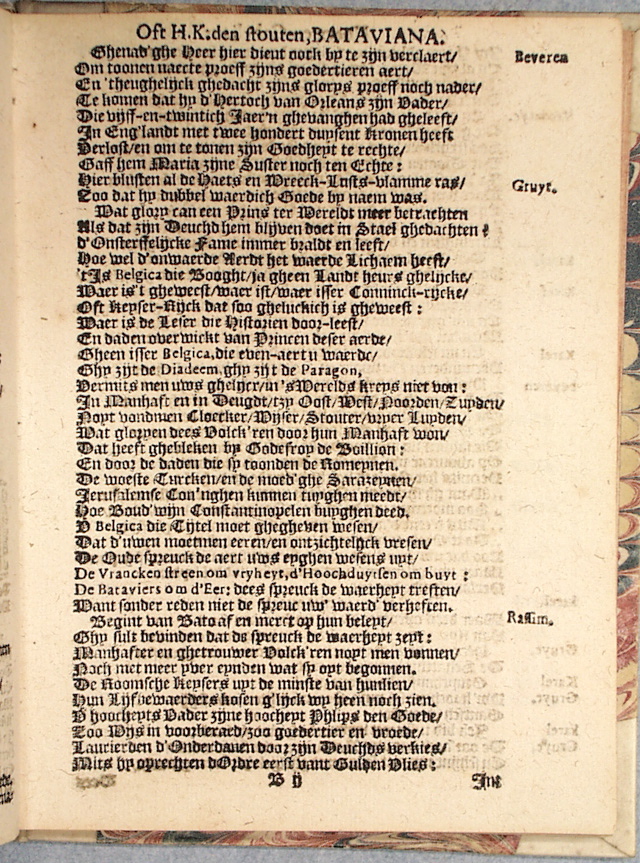 Oft H.K. den stouten, BATAVIANA.
Ghenad'ghe Heer hier dient oock by te zijn verclaert/
Beveren
Om toonen naecte proeff zijns goedertieren aert/
En 'theughelijck ghedacht zijns glorys proeff noch nader/
Te komen dat hy d'Hertoch van Orleans zijn Vader/
Die vijff-en-twintich Jaer'n ghevanghen had gheleeft/
In Eng'landt met twee hondert duysent Kronen heeft
Verlost/en om te tonen zijn Goedheyt te rechte/
Gaff hem Maria zijne Suster noch ten Echte:
Hier blusten al de Haets en Wreeck-Lusts-vlamme ras/
Gruyt.
Zoo dat hy dubbel waerdich Goede by naem was.
Wat glory can een Prins ter Wereldt meer betrachten
Als dat zijn Deuchd hem blijven doet in Stael ghedachten?
d'Onsterffelijcke Fame immer braldt en leeft/
Hoe wel d'onwaerde Aerdt het waerde Lichaem heeft/
't Is Belgica die Booght/ja gheen Landt heurs ghelijcke/
Waer is't gheweest/waer ist/waer isser Conninck-rijcke/
Oft Keyser-Rijck dat soo gheluckich is gheweest:
Waer is de Leser die Historien door-leest/
En daden overwickt van Princen deser aerde/
Gheen isser Belgica, die even-aert u waerde/
Ghy zijt de Diadeem, ghy zijt de Paragon,
Vermits men uws ghelijcx/in 'sWerelds kreys niet von:
In Manhaft en in Deugdt/tzy Oost/West/Noorden/Zuyden/
Noyt vondmen Cloecker/Wijser/Stouter/vryer Luyden/
Wat gloryen dees Volck'ren door hun Manhaft won/
Dat heeft ghebleken by Godefroy de Boillion:
En door de daden die sy toonden de Romeynen.
De woeste Turcken/en de moed'ghe Sarazeynen/
Jerusalemse Con'nghen kunnen tuyghen meedt/
Hoe Boud'wijn Constantinopelen buyghen deed.
V Belgica die Tijtel moet ghegheven wesen/
Dat d'uwen moetmen eeren/en ontzichtelijck vresen/
De Oude spreuck de aert uws eyghen wesens uyt/
De Vrancken streen om vryheyt, d'Hoochduytsen om buyt:
De Bataviers om d'Eer: dees spreuck de waerheyt treften/
Want sonder reden niet de spreuc uw' waerd' verheften.
Begint van Bato af en merct op hun beleyt/
Rassim.
Ghy sult bevinden dat ds spreuck de waerheyt zeyt:
Manhafter en ghetrouwer Volck'ren noyt men vonnen/
Noch met meer yver eynden wat sy oyt begonnen.
De Roomsche Keysers uyt de minste van hunlien/
Hun Lijfbewaerders kosen g'lijck wy heen noch zien.
V hoocheyts Vader zijne hoocheyt Philips den Goede/
Zoo Wijs in voorberaed/zoo goedertier en vroede/
Laurierden d'Onderdanen door zijn Deuchds verkies/
Mits hy oprechten dOrdre eerst vant Gulden Vlies:
B ij
Int